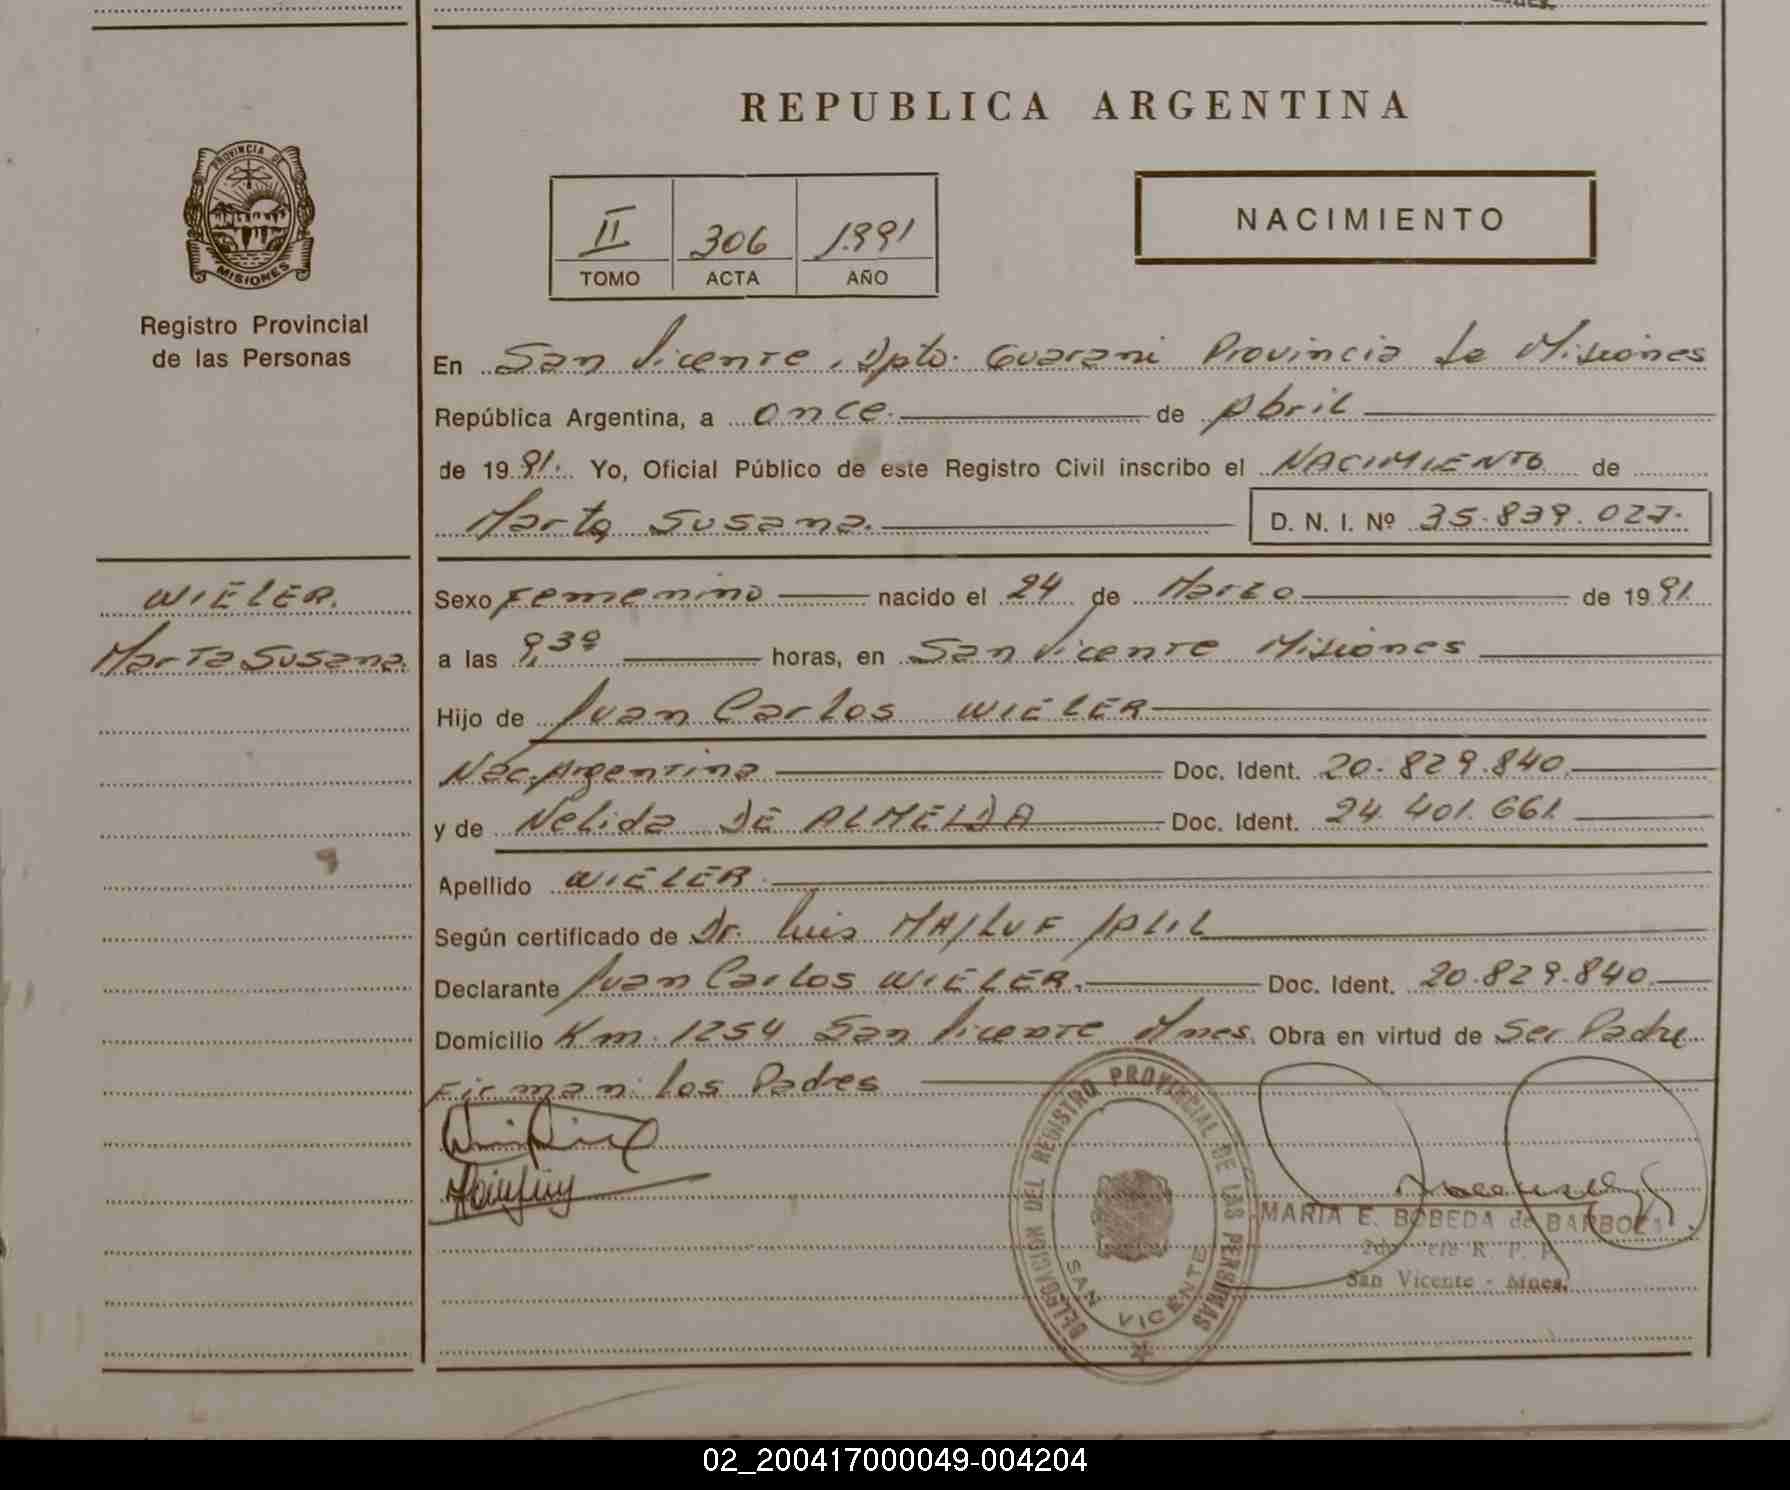 REPUBLICA ARGENTINA
PROVINCIA DE
MISIONES
Registro Provincial
de las Personas
II 306 1.991
TOMO ACTA AÑO
NACIMIENTO
En San Vicente, Dpto. Guarani Provincia de Misiones
República Argentina, a once. de Abril
de 1991. Yo, Oficial Público de este Registro Civil inscribo el NACIMIENTO de
Marta Susana. D. N. I. Nº 35.839.027.
WIELER.
Marta Susana.
Sexo Femenino nacido el 24 de Marzo de 1991.
a las 9,30 horas, en San Vicente Misiones
Hijo de Juan Carlos WIELER
Nac. Argentina Doc. Ident. 20.829.840.
y de Nelida DE ALMEIDA Doc. Ident. 24.401.661.
Apellido WIELER.
Según certificado de Dr. Luis MAJLUF
Declarante Juan Carlos WIELER. Doc. Ident. 20.829.840.
Domicilio Km. 1254 San Vicente Mnes. Obra en virtud de Ser Padre
Firman: los Padres
DELEGACION DEL REGISTRO PROVINCIAL DE LAS PERSONAS
SAN VICENTE
MARIA E. BOBEDA de
R. P. P.
San Vicente - Mnes.
02_200417000049-004204